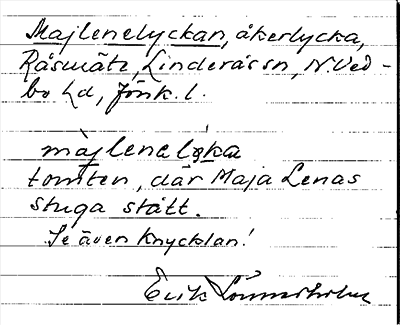 Majlenelyckan, åkerlycka,
Råsmäte, Linderås sn, N. Ved-
bo hd, Jönk. l.
màjlenelyka
tomten, där Maja Lenas
stuga stått.
Se även Knycklan!
Erik